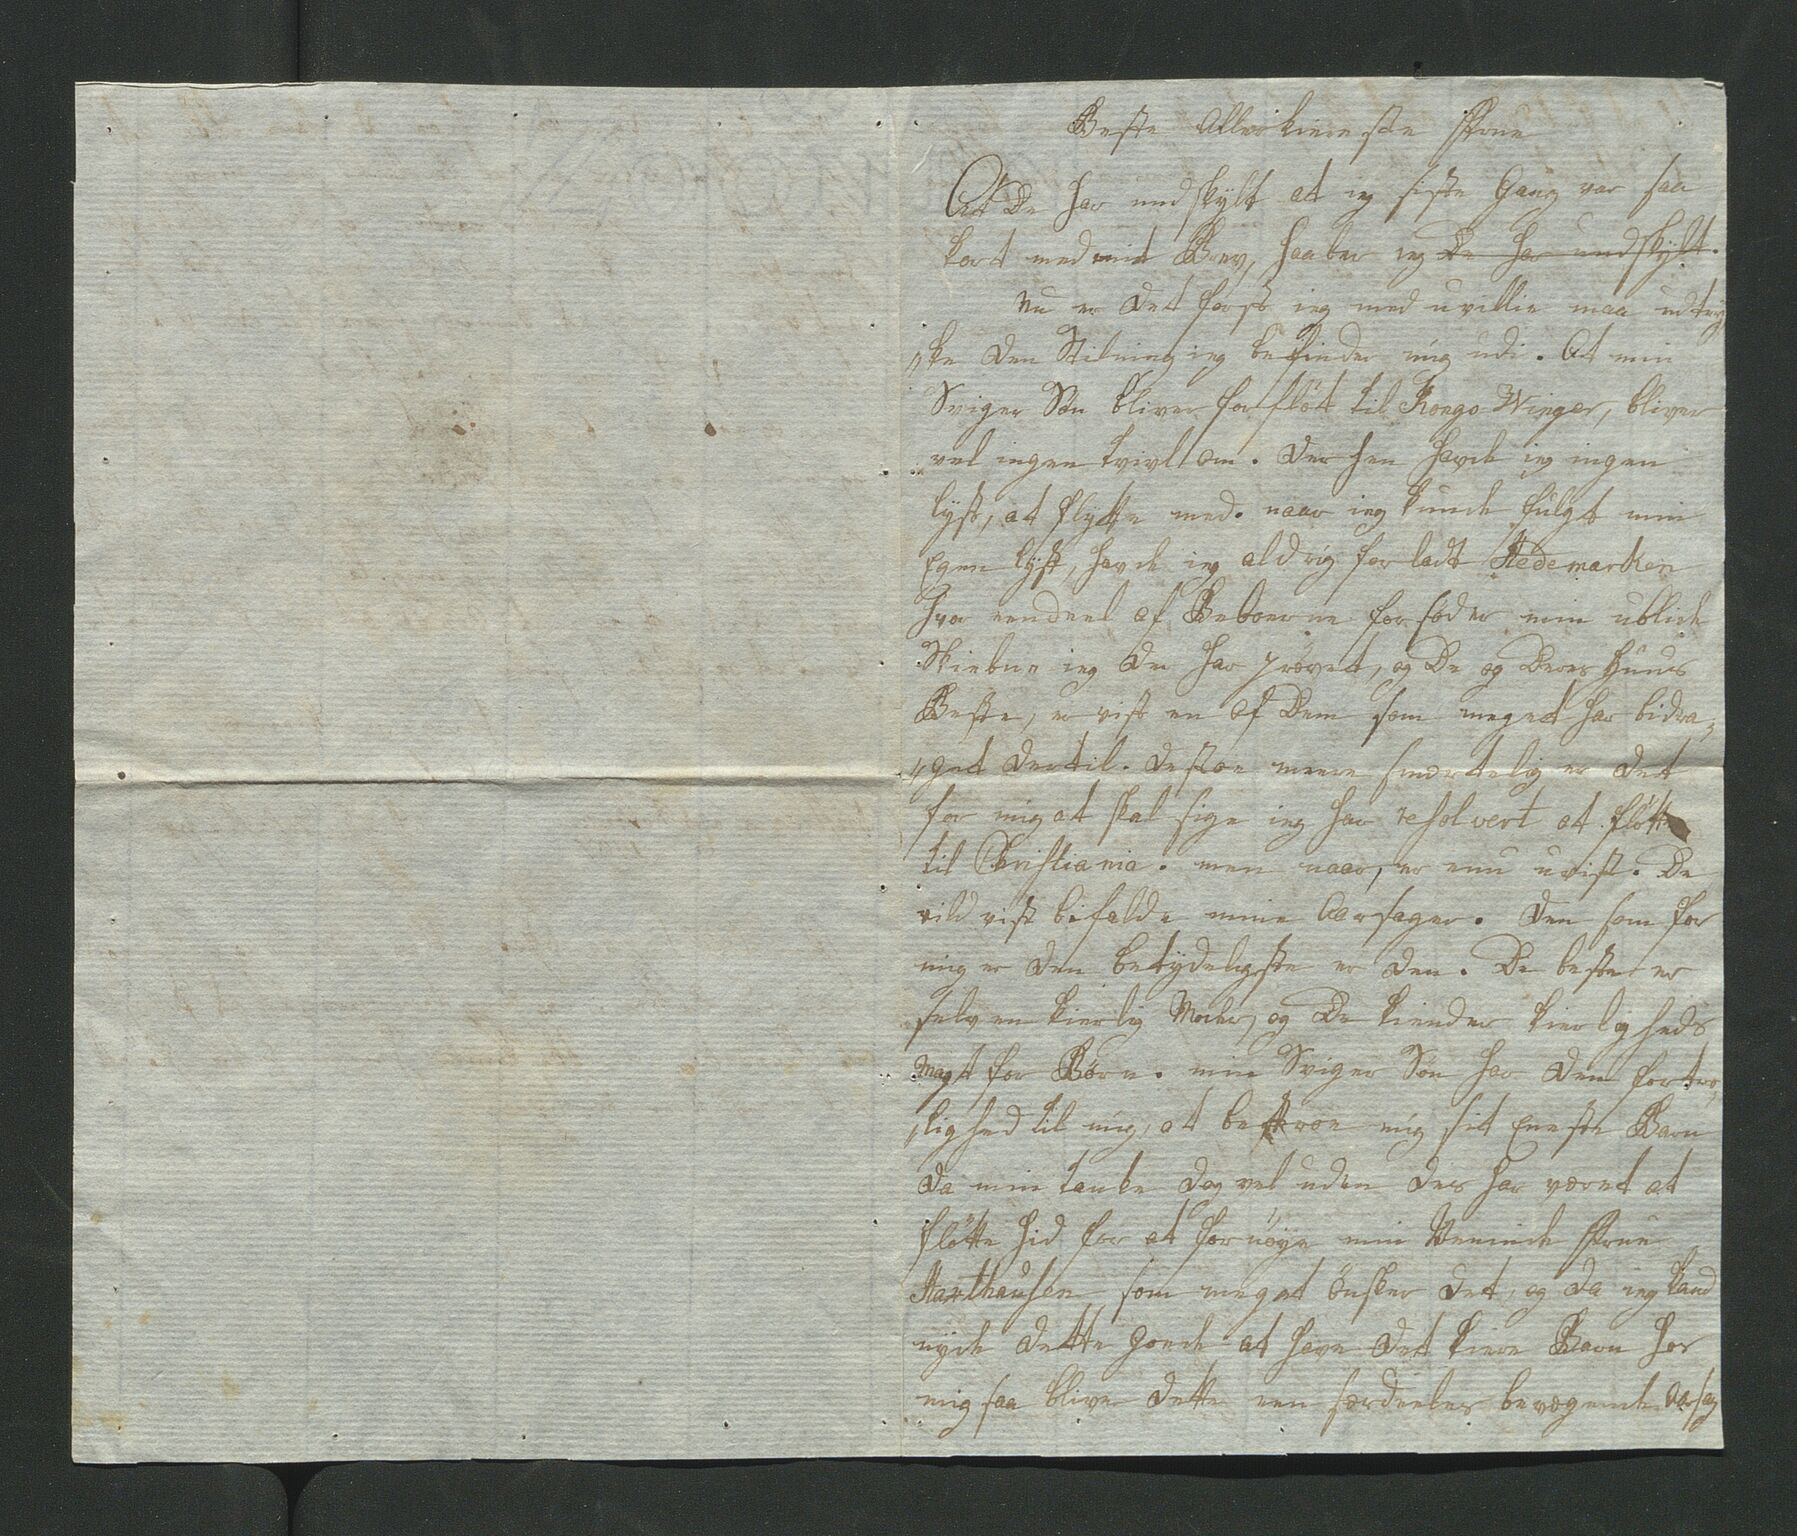 Beste Allerkiereste Frue
At De har undskylt at ieg siste Gang var saa
kort med mit Brev, haaber ieg De har undskylt.
nu er det først ieg med uvillie maa udtry
„ke den Stilning ieg befinder mig udi. At min
Sviger Søn bliver forfløt til Kongs Winger, bliver
vel ingen tvivl om. Der hen havde ieg ingen
lyst, at flytte med. naar ieg kunde fulgt min
Egen lyst, havde ieg aldrig forladt Hedemarken
hvor eendeel af Beboerne forsøder min ublide
Skiebne ieg der har prøvet, og De og Deres Huus
Beste, er vist en af Dem som meget har bidra„
„get dertil. desto meere smertelig er det
for mig at skal sige ieg har resolvert at fløtte
til Christiania. men naar, er enu uvist. De
vild vist bifalde mine Aarsager. Den som for
mig er den betydeligste er den. De beste er
selv en kierlig Moder, og De kiender kierligheds
magt for Børn. min Sviger Søn har den fortro„
„lighed til mig, at betroe mig sit Eneste Barn
da min tanke dog vel uden des har været at
fløtte hid for at fornöye min Veninde Frue
Haxthausen som meget önsker det, og da ieg kand
nyde dette gode at have det kiere Barn hos
mig saa bliver dette een særdeeles bevægende Aarsag